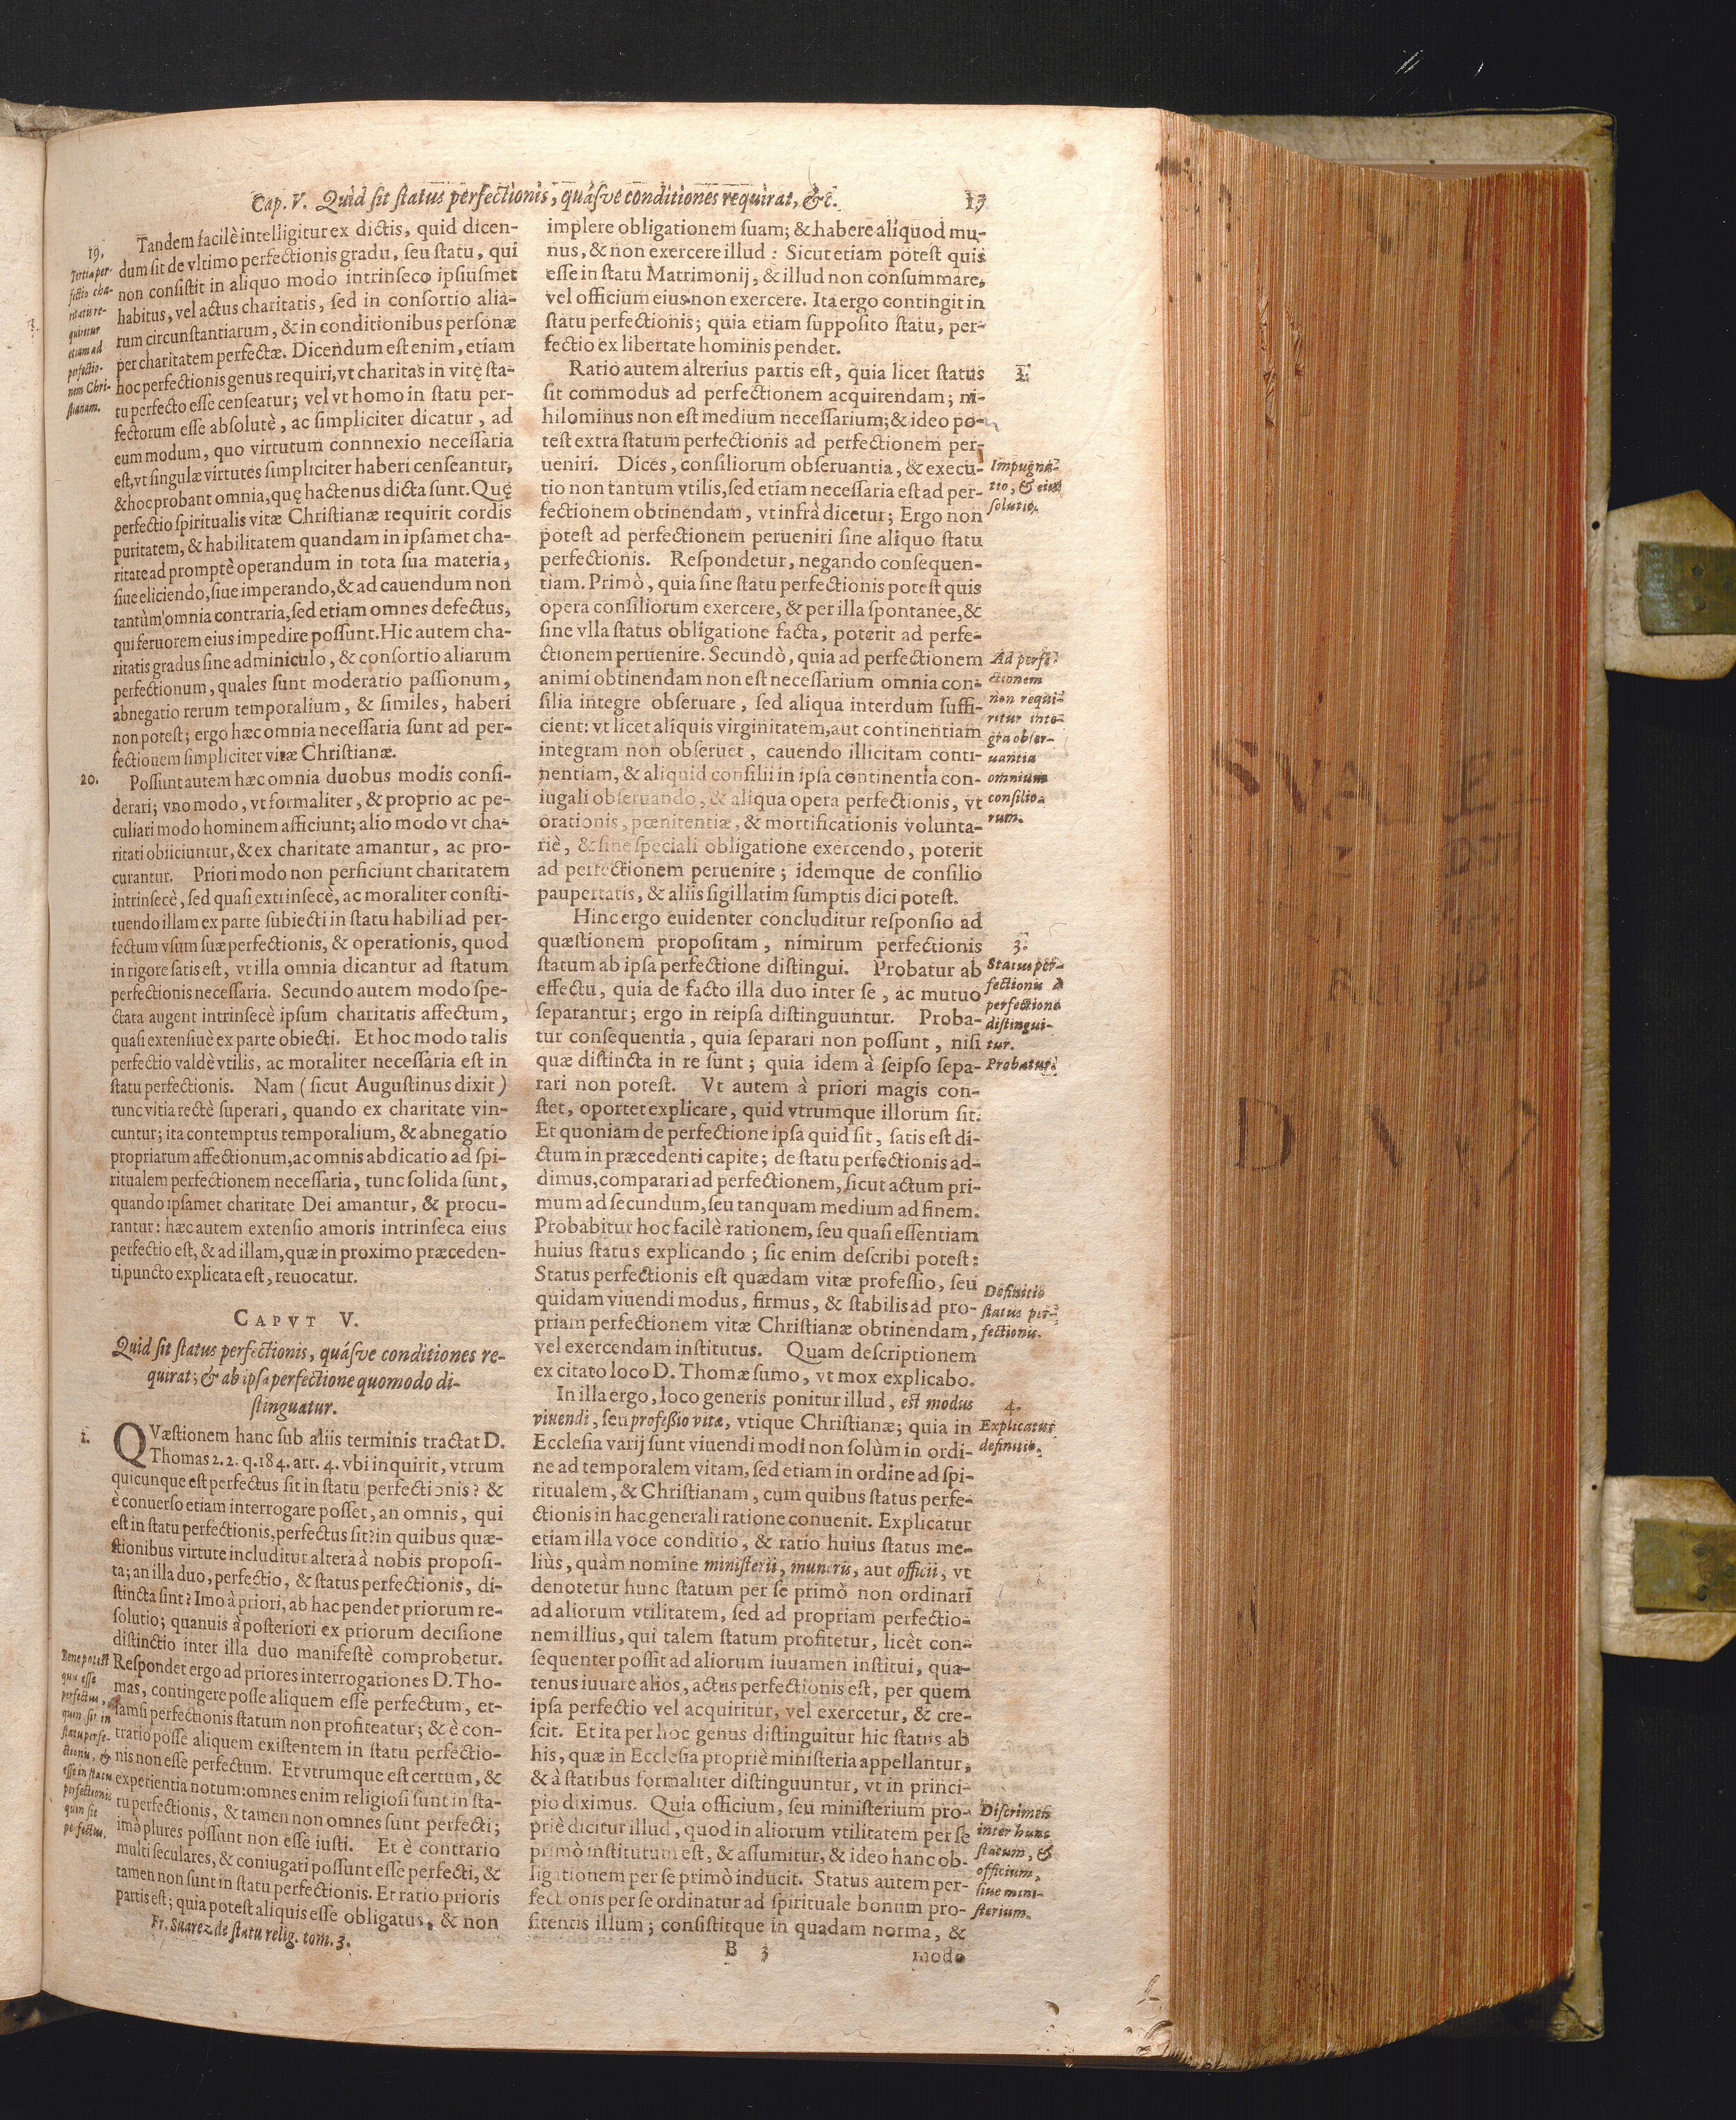 Cap. V. Quid sit status perfectionis, quásve conditiones requirat, &c.
13
19.
Tertia per-
fectio cha-
ritatis re-
quiritur
etiam ad
perfectio-
nem Chri-
stianam.
Tandem facilè intelligitur ex dictis, quid dicen-
dum sit de vltimo perfectionis gradu, seu statu, qui
non consistit in aliquo modo intrinseco ipsiusmet
habitus, vel actus charitatis, sed in consortio alia-
rum circunstantiarum, & in conditionibus personæ
per charitatem perfectæ. Dicendum est enim, etiam
hoc perfectionis genus requiri, vt charitas in vitę sta-
tu perfecto esse censeatur; vel vt homo in statu per-
fectorum esse absolutè, ac simpliciter dicatur, ad
eum modum, quo virtutum connnexio necessaria
est, vt singulæ virtutes simpliciter haberi censeantur,
& hoc probant omnia, quę hactenus dicta sunt. Quę
perfectio spiritualis vitæ Christianæ requirit cordis
puritatem, & habilitatem quandam in ipsamet cha-
ritate ad promptè operandum in tota sua materia,
siue eliciendo, siue imperando, & ad cauendum non
tantùm omnia contraria, sed etiam omnes defectus,
qui feruorem eius impedire possunt. Hic autem cha-
ritatis gradus sine adminiculo, & consortio aliarum
perfectionum, quales sunt moderatio passionum,
abnegatio rerum temporalium, & similes, haberi
non potest; ergo hæc omnia necessaria sunt ad per-
fectionem simpliciter vitæ Christianæ.
20.
Possunt autem hæc omnia duobus modis consi-
derari; vno modo, vt formaliter, & proprio ac pe-
culiari modo hominem afficiunt; alio modo vt cha-
ritati obiiciuntur, & ex charitate amantur, ac pro-
curantur. Priori modo non perficiunt charitatem
intrinsecè, sed quasi extrinsecè, ac moraliter consti-
tuendo illam ex parte subiecti in statu habili ad per-
fectum vsum suæ perfectionis, & operationis, quod
in rigore satis est, vt illa omnia dicantur ad statum
perfectionis necessaria. Secundo autem modo spe-
ctata augent intrinsecè ipsum charitatis affectum,
quasi extensiuè ex parte obiecti. Et hoc modo talis
perfectio valdè vtilis, ac moraliter necessaria est in
statu perfectionis. Nam (sicut Augustinus dixit)
tunc vitia rectè superari, quando ex charitate vin-
cuntur; ita contemptus temporalium, & abnegatio
propriarum affectionum, ac omnis abdicatio ad spi-
ritualem perfectionem necessaria, tunc solida sunt,
quando ipsamet charitate Dei amantur, & procu-
rantur: hæc autem extensio amoris intrinseca eius
perfectio est, & ad illam, quæ in proximo præceden-
ti puncto explicata est, reuocatur.
CAPVT V.
Quid sit status perfectionis, quásve conditiones re-
quirat; & ab ipsa perfectione quomodo di-
stinguatur.
1.
QVæstionem hanc sub aliis terminis tractat D.
Thomas 2.2. q.184. art. 4. vbi inquirit, vtrum
quicunque est perfectus sit in statu perfectionis? &
è conuerso etiam interrogare posset, an omnis, qui
est in statu perfectionis, perfectus sit? in quibus quæ-
stionibus virtute includitur altera à nobis proposi-
ta; an illa duo, perfectio, & status perfectionis, di-
stincta sint? Imo à priori, ab hac pendet priorum re-
solutio; quanuis à posteriori ex priorum decisione
distinctio inter illa duo manifestè comprobetur.
Bene potest
quis esse
perfectus,
quin sit in
statu perfe-
ctionis, &
esse in statu
perfectionis
quin sit
perfectus.
Respondet ergo ad priores interrogationes D. Tho-
mas, contingere posse aliquem esse perfectum, et-
iamsi perfectionis statum non profiteatur; & è con-
tratio posse aliquem existentem in statu perfectio-
nis non esse perfectum. Et vtrumque est certum, &
experientia notum: omnes enim religiosi sunt in sta-
tu perfectionis, & tamen non omnes sunt perfecti;
imò plures possunt non esse iusti. Et è contrario
multi seculares, & coniugati possunt esse perfecti, &
tamen non sunt in statu perfectionis. Et ratio prioris
partis est; quia potest aliquis esse obligatus, & non
Fr. Suarez de statu relig. tom. 3.
implere obligationem suam; & habere aliquod mu-
nus, & non exercere illud: Sicut etiam potest quis
esse in statu Matrimonij, & illud non consummare,
vel officium eius non exercere. Ita ergo contingit in
statu perfectionis; quia etiam supposito statu, per-
fectio ex libertate hominis pendet.
2.
Ratio autem alterius partis est, quia licet status
sit commodus ad perfectionem acquirendam; ni-
hilominus non est medium necessarium; & ideo po-
test extra statum perfectionis ad perfectionem per-
ueniri. Dices, consiliorum obseruantia, & execu-
tio non tantum vtilis, sed etiam necessaria est ad per-
fectionem obtinendam, vt infrà dicetur; Ergo non
potest ad perfectionem perueniri sine aliquo statu
perfectionis. Respondetur, negando consequen-
tiam. Primò, quia sine statu perfectionis potest quis
opera consiliorum exercere, & per illa spontanee, &
sine vlla status obligatione facta, poterit ad perfe-
ctionem peruenire. Secundò, quia ad perfectionem
animi obtinendam non est necessarium omnia con-
silia integre obseruare, sed aliqua interdum suffi-
cient: vt licet aliquis virginitatem, aut continentiam
integram non obseruet, cauendo illicitam conti-
nentiam, & aliquid consilii in ipsa continentia con-
iugali obseruando, & aliqua opera perfectionis, vt
orationis, pœnitentiæ, & mortificationis volunta-
riè, & sine speciali obligatione exercendo, poterit
ad perfectionem peruenire; idemque de consilio
paupertatis, & aliis sigillatim sumptis dici potest.
Impugna-
tio, & eius
solutio.
Ad perfe-
ctionem
non requi-
ritur inte-
gra obser-
uantia
omnium
consilio-
rum.
Hinc ergo euidenter concluditur responsio ad
quæstionem propositam, nimirum perfectionis
statum ab ipsa perfectione distingui. Probatur ab
effectu, quia de facto illa duo inter se, ac mutuo
separantur; ergo in reipsa distinguuntur. Proba-
tur consequentia, quia separari non possunt, nisi
quæ distincta in re sunt; quia idem à seipso sepa-
rari non potest. Vt autem à priori magis con-
stet, oportet explicare, quid vtrumque illorum sit.
Et quoniam de perfectione ipsa quid sit, satis est di-
ctum in præcedenti capite; de statu perfectionis ad-
dimus, comparari ad perfectionem, sicut actum pri-
mum ad secundum, seu tanquam medium ad finem.
Probabitur hoc facilè rationem, seu quasi essentiam
huius status explicando; sic enim describi potest:
Status perfectionis est quædam vitæ professio, seu
quidam viuendi modus, firmus, & stabilis ad pro-
priam perfectionem vitæ Christianæ obtinendam,
vel exercendam institutus. Quam descriptionem
ex citato loco D. Thomæ sumo, vt mox explicabo.
3.
Status per-
fectionis à
perfectione
distingui-
tur.
Probatur.
Definitio
status per-
fectionis.
In illa ergo, loco generis ponitur illud, est modus
viuendi, seu professio vitæ, vtique Christianæ; quia in
Ecclesia varij sunt viuendi modi non solùm in ordi-
ne ad temporalem vitam, sed etiam in ordine ad spi-
ritualem, & Christianam, cum quibus status perfe-
ctionis in hac generali ratione conuenit. Explicatur
etiam illa voce conditio, & ratio huius status me-
liùs, quàm nomine ministerii, muneris, aut officii, vt
denotetur hunc statum per se primò non ordinari
ad aliorum vtilitatem, sed ad propriam perfectio-
nem illius, qui talem statum profitetur, licèt con-
sequenter possit ad aliorum iuuamen institui, qua-
tenus iuuare alios, actus perfectionis est, per quem
ipsa perfectio vel acquiritur, vel exercetur, & cre-
scit. Et ita per hoc genus distinguitur hic status ab
his, quæ in Ecclesia propriè ministeria appellantur,
& à statibus formaliter distinguuntur, vt in princi-
pio diximus. Quia officium, seu ministerium pro-
priè dicitur illud, quod in aliorum vtilitatem per se
primò institutum est, & assumitur, & ideo hanc ob-
ligationem per se primò inducit. Status autem per-
fectionis per se ordinatur ad spirituale bonum pro-
fitentis illum; consistitque in quadam norma, &
4.
Explicatur
definitio.
Discrimen
inter hunc
statum, &
officium,
siue mini-
sterium.
B 3
modo